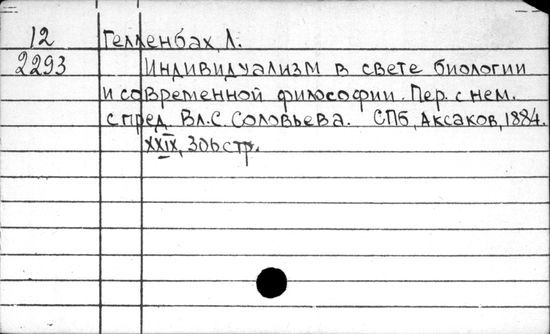 12 Гелленбах, Л.
2293 Индивидуализм в свете биологии
и современной философии. Пер. с нем.
с пред. Вл. С. Соловьева. СПб, Аксаков, 1884.
XXIX, 306 стр.